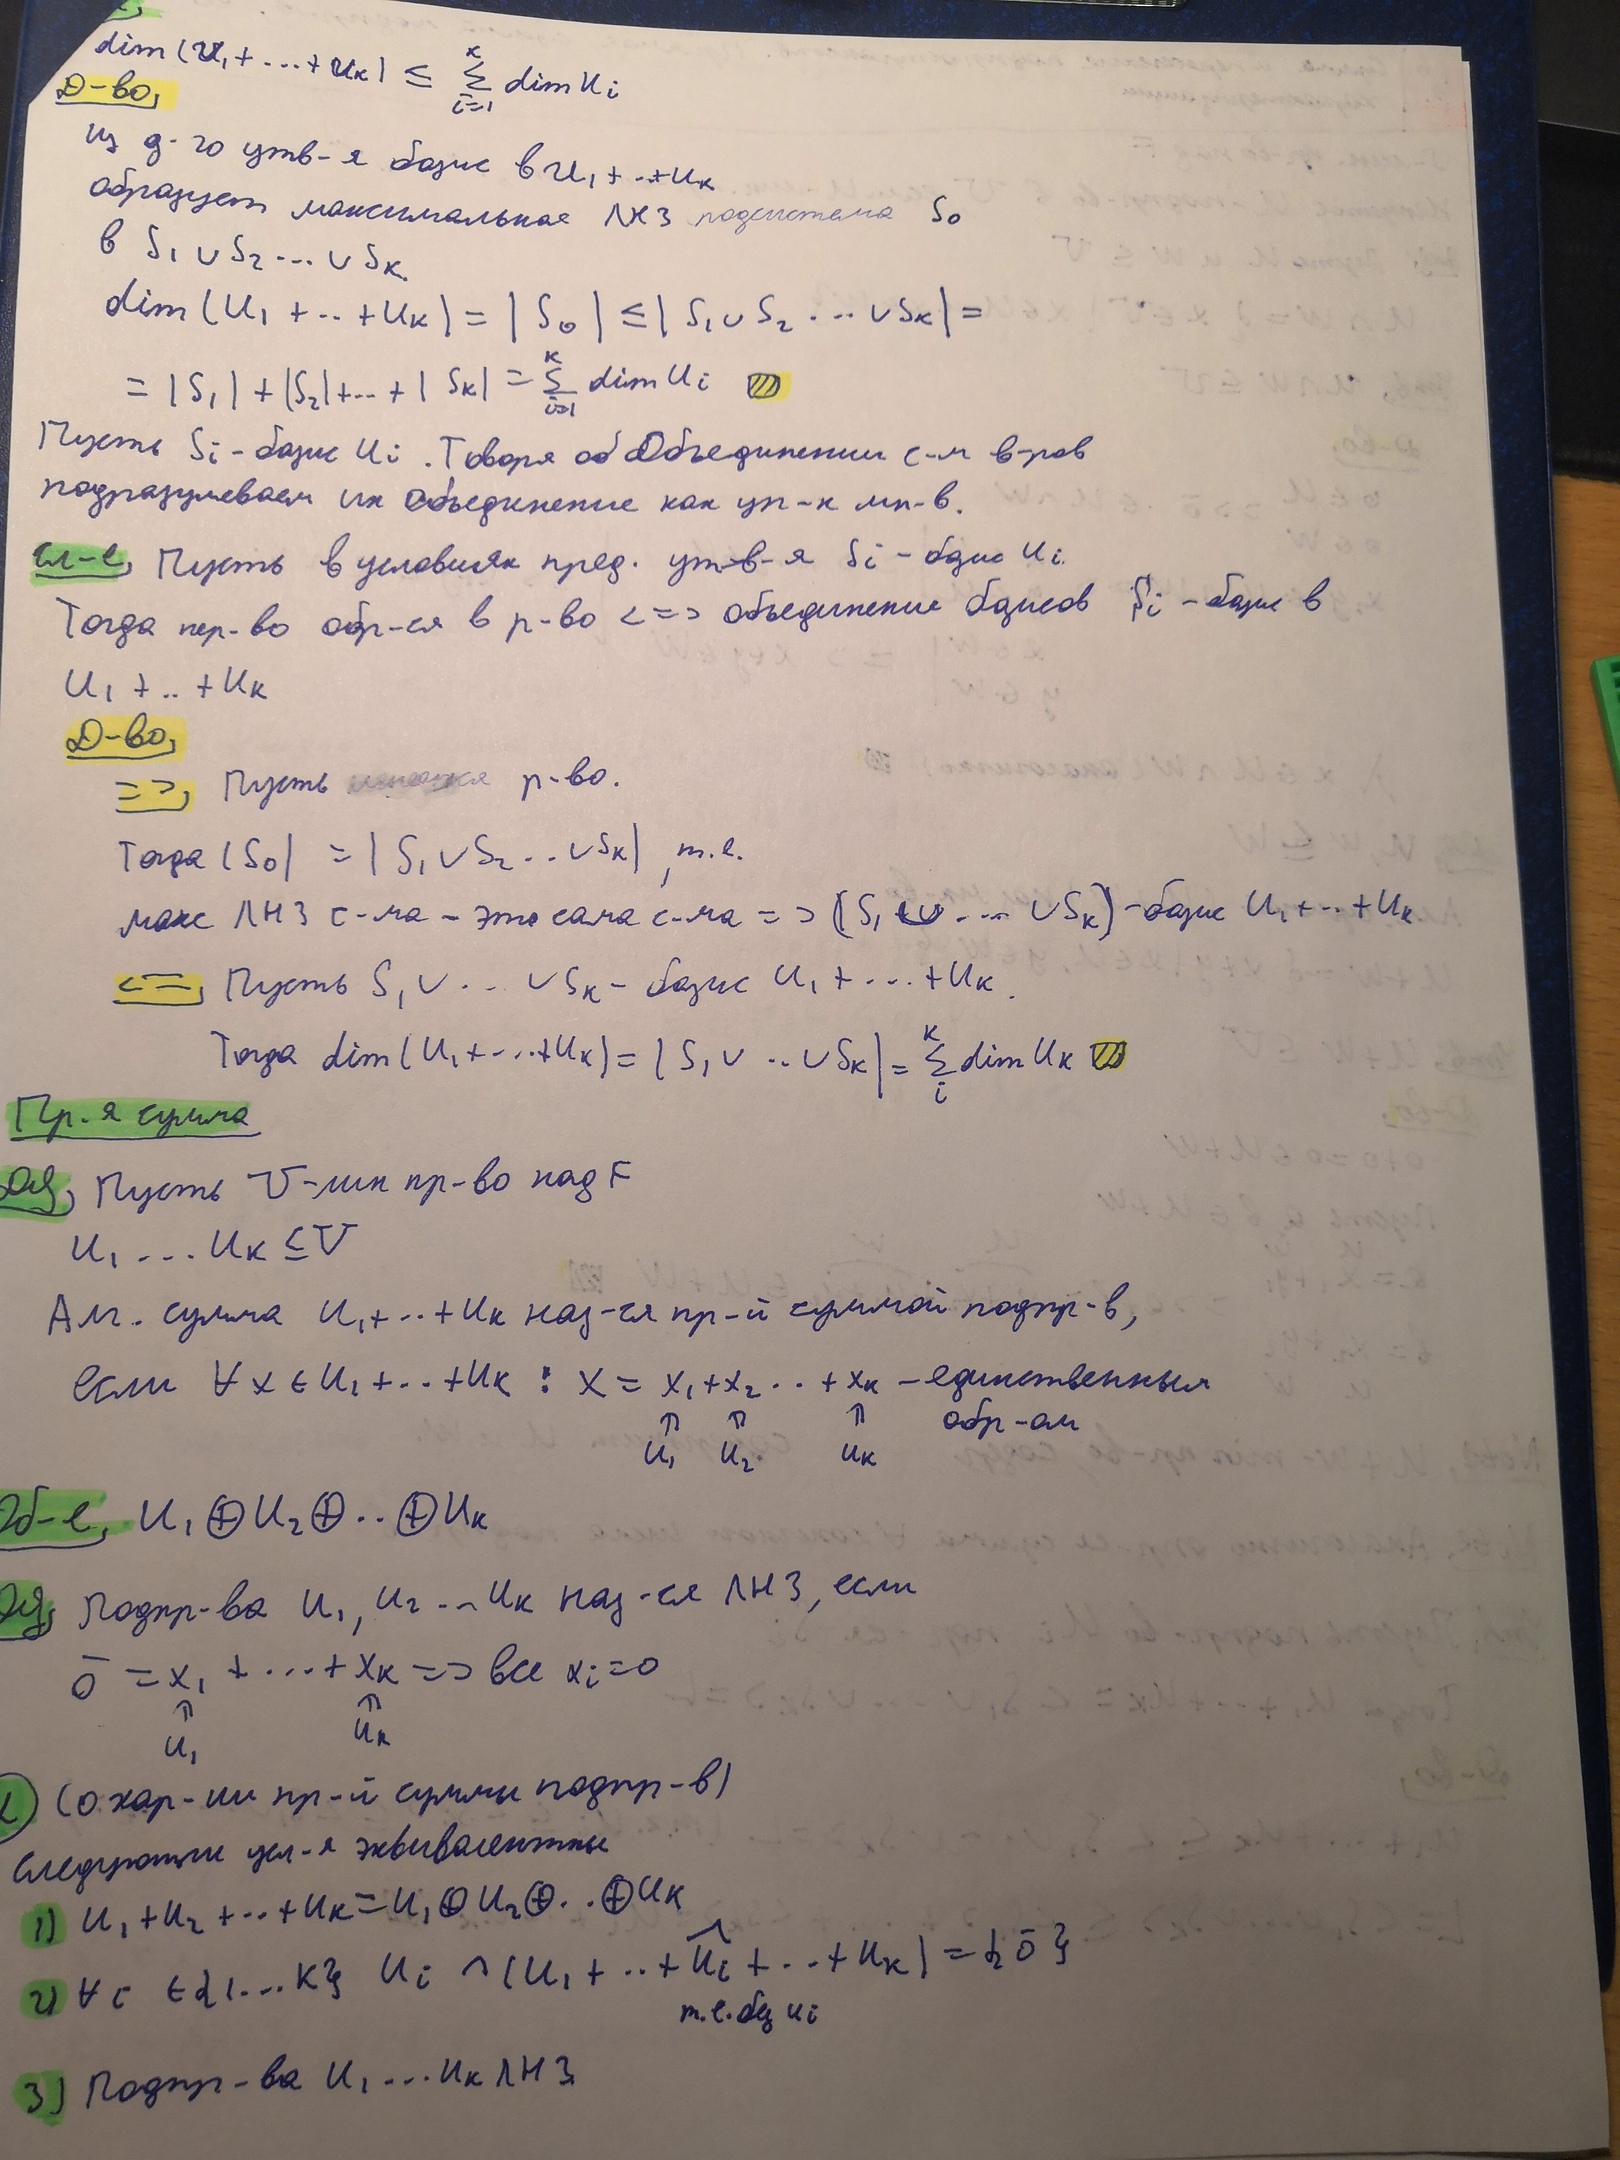 dim(U₁+...+Uₖ) ≤ Σᵢ₌₁ᵏ dim Uᵢ
Д-во,
Из д-го утв-я базис в U₁+..+Uₖ
образует максимальная ЛНЗ подсистема S₀
в S₁∪S₂...∪Sₖ.
dim(U₁+..+Uₖ) = |S₀| ≤ |S₁∪S₂...∪Sₖ| =
= |S₁|+|S₂|+..+|Sₖ| = Σᵢ₌₁ᵏ dim Uᵢ
Пусть Sᵢ - базис Uᵢ. Говоря об Объединении с-м в-ров
подразумеваем их объединение как уп-х мн-в.
Сл-е, Пусть в условиях пред. утв-я Sᵢ - бзис Uᵢ.
Тогда нер-во обр-ся в р-во <=> объединение бзисов Sᵢ - базис в
U₁+..+Uₖ
Д-во,
=>, Пусть р-во.
Тогда |S₀| = |S₁∪S₂..∪Sₖ|, т.е.
макс ЛНЗ с-ма - это сама с-ма => (S₁∪...∪Sₖ) - базис U₁+..+Uₖ
<=, Пусть S₁∪...∪Sₖ - базис U₁+...+Uₖ.
Тогда dim(U₁+...+Uₖ) = |S₁∪..∪Sₖ| = Σᵢᵏ dim Uₖ
Пр-я сумма
Пусть V - лин пр-во над F
U₁...Uₖ ≤ V
Алг. сумма U₁+..+Uₖ наз-ся пр-й суммой подпр-в,
если ∀x∈U₁+...+Uₖ : x = x₁+x₂..+xₖ - единственным
обр-ом
U₁ U₂ Uₖ
Об-е, U₁⊕U₂⊕..⊕Uₖ
Подпр-ва U₁, U₂...Uₖ наз-ся ЛНЗ, если
0̄ = x₁+...+xₖ => все xᵢ=0
U₁ Uₖ
(о хар-ии пр-й суммы подпр-в)
Следующие усл-я эквивалентны
1) U₁+U₂+..+Uₖ = U₁⊕U₂⊕..⊕Uₖ
2) ∀i∈{1...k} Uᵢ ∩ (U₁+..+Ûᵢ+..+Uₖ) = {0̄}
т.е. без uᵢ
3) Подпр-ва U₁...Uₖ ЛНЗ